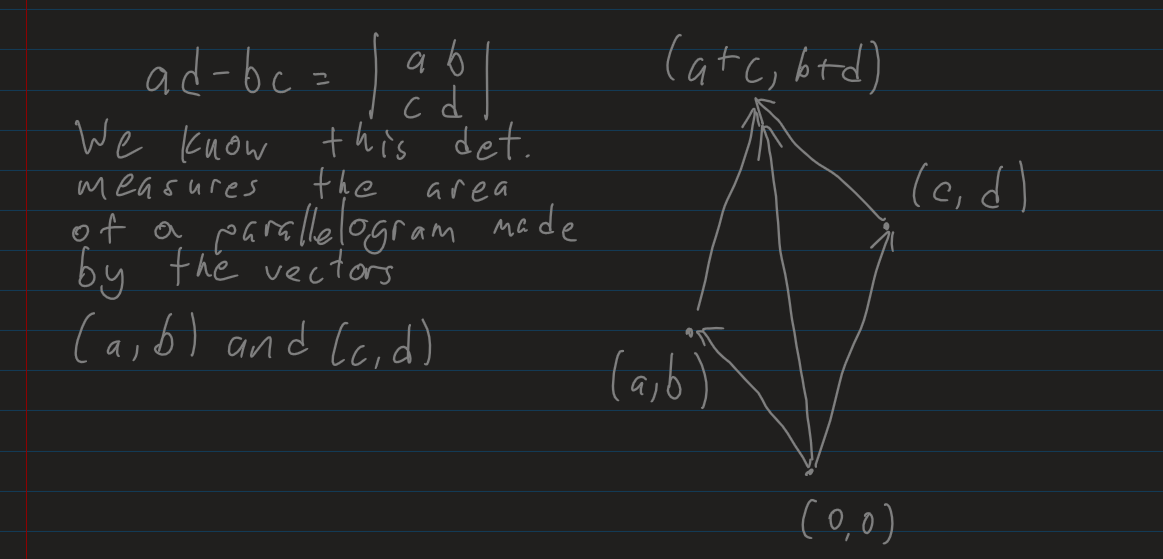 ad-bc = | a b |
| c d |
We know this det.
measures the area
of a parallelogram made
by the vectors
(a,b) and (c,d)
(a+c, b+d)
(c, d)
(a,b)
(0,0)